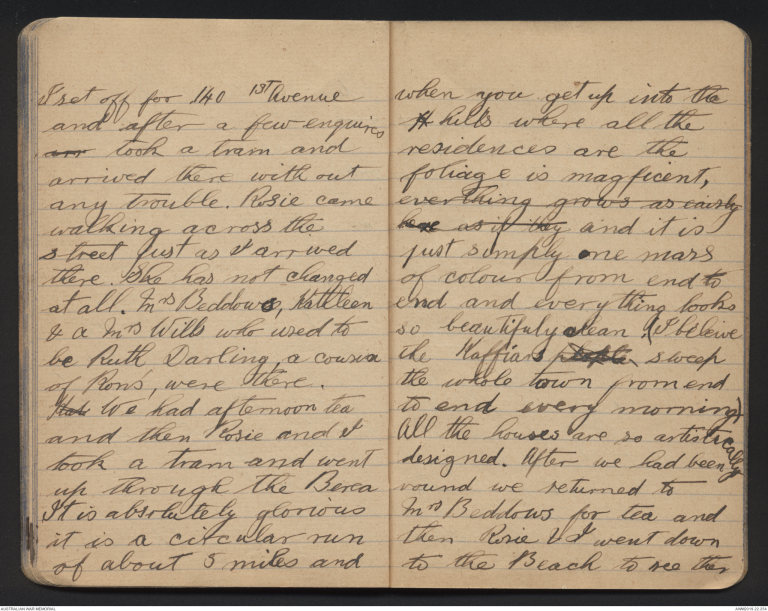 I set off for 140 1st Avenue
and after a few enquires
arr took a tram and
arrived there with out
any trouble. Rosie came
walking across the
street just as I arrived
there. She has not changed
at all. Mrs Beddows, Kathleen
& a Mrs Wills who used to
be Ruth Darling, a cousin
of Ron's, were there.
We had afternoon tea
and then Rosie and I
took a tram and went
up through the Berea
It is absolutely glorious
it is a circular run
of about 5 miles and
when you get up into the
H hills where all the
residences are the
foliage is magficent,
everthing grows as easily
as if they and it is
just simply one mass
of colour from end to
end and everything looks
so beautifuly clean. (I beleive
the Kaffiars people sweep
the whole town from end
to end every morning)
All the houses are so artistically
designed. After we had been
round we returned to
Mrs Beddows for tea and
then Rosie & I went down
to the Beach to see the
AUSTRALIAN WAR MEMORIAL